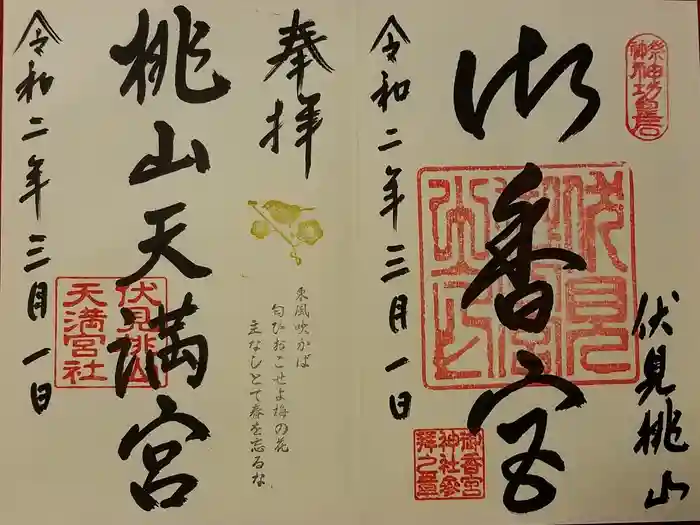 伏見桃山
御香宮
令和二年三月一日
祭神神功皇后
御香宮
神社参
拝之璽
奉拝
東風吹かば
匂ひおこせよ梅の花
主なしとて春を忘るな
桃山天満宮
伏見桃山
天満宮社
令和二年三月一日